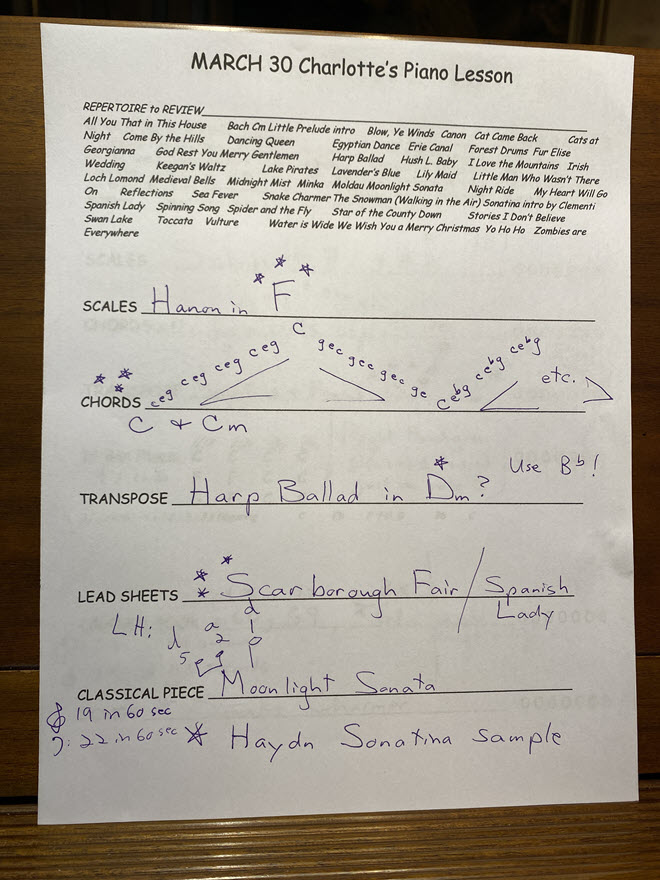 MARCH 30 Charlotte's Piano Lesson
REPERTOIRE to REVIEW
All You That in This House Bach Cm Little Prelude intro Blow, Ye Winds Canon Cat Came Back Cats at
Night Come By the Hills Dancing Queen Egyptian Dance Erie Canal Forest Drums Fur Elise
Georgianna God Rest You Merry Gentlemen Harp Ballad Hush L. Baby I Love the Mountains Irish
Wedding Keegan's Waltz Lake Pirates Lavender's Blue Lily Maid Little Man Who Wasn't There
Loch Lomond Medieval Bells Midnight Mist Minka Moldau Moonlight Sonata Night Ride My Heart Will Go
On Reflections Sea Fever Snake Charmer The Snowman (Walking in the Air) Sonatina intro by Clementi
Spanish Lady Spinning Song Spider and the Fly Star of the County Down Stories I Don't Believe
Swan Lake Toccata Vulture Water is Wide We Wish You a Merry Christmas Yo Ho Ho Zombies are
Everywhere
SCALES Hanon in F
C
ceg ceg ceg ceg gec gec gec ge C e♭g ce♭g ce♭g
etc.
CHORDS
C + Cm
Use B♭!
TRANSPOSE Harp Ballad in Dm?
LEAD SHEETS Scarborough Fair / Spanish
Lady
LH: d a d
5 2 1
p
CLASSICAL PIECE Moonlight Sonata
19 in 60 sec
22 in 60 sec Haydn Sonatina sample